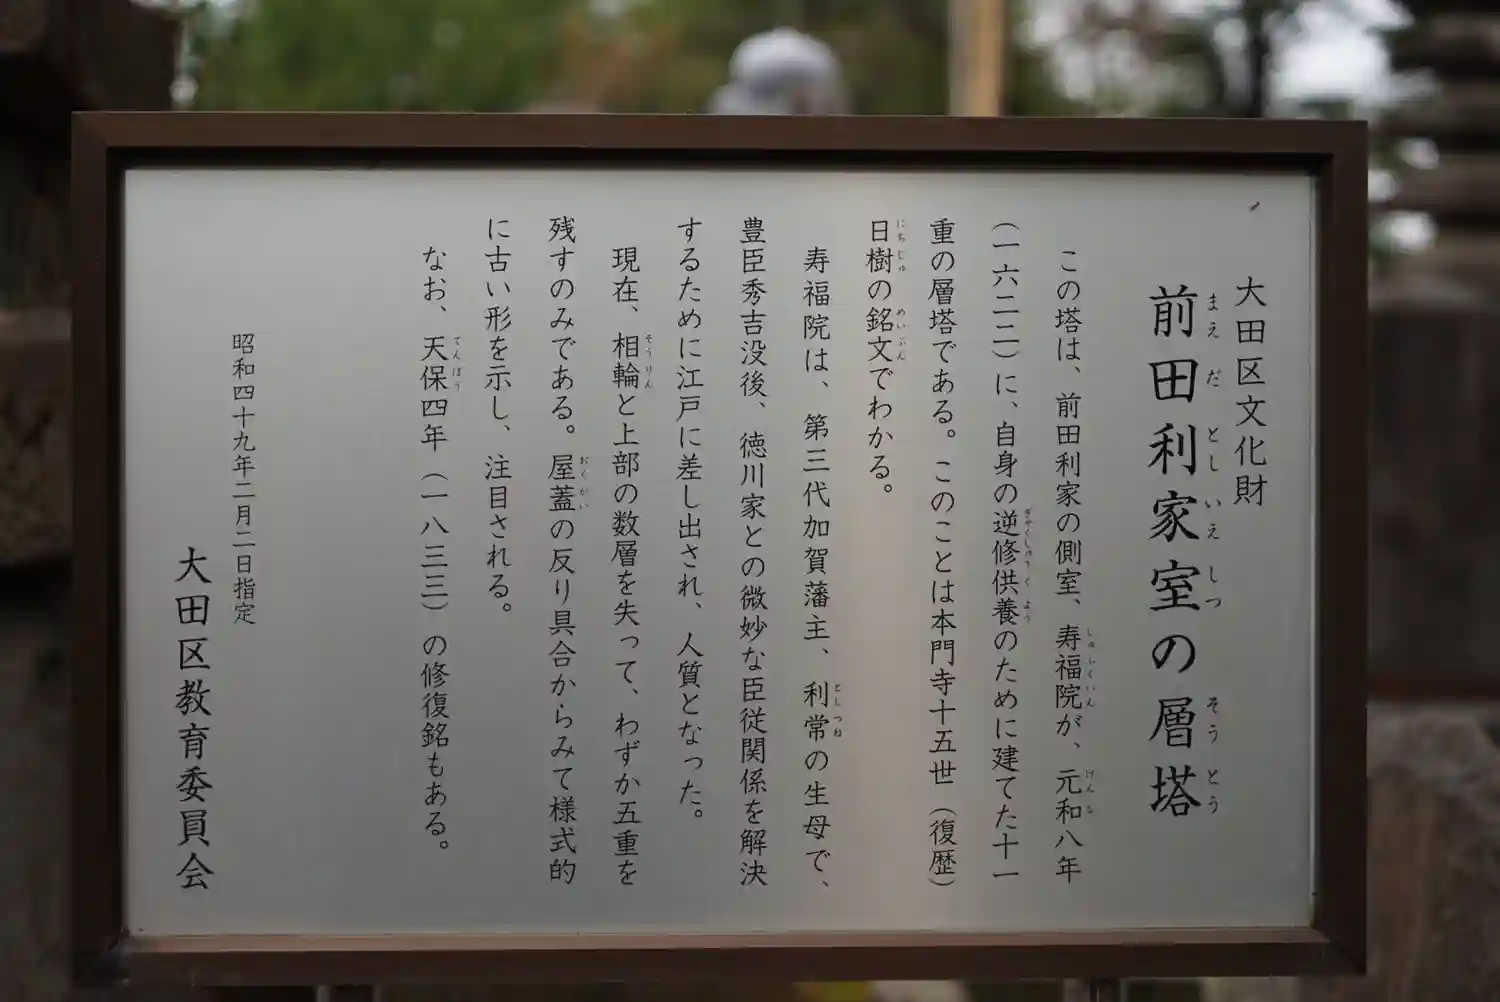 大田区文化財
前田利家室の層塔
まえ だ とし いえ しつ そう とう
この塔は、前田利家の側室、寿福院が、元和八年
じゅふくいん げんな
(一六二二)に、自身の逆修供養のために建てた十一
ぎゃくしゅうくよう
重の層塔である。このことは本門寺十五世(復歴)
日樹の銘文でわかる。
にちじゅ めいぶん
寿福院は、第三代加賀藩主、利常の生母で、
としつね
豊臣秀吉没後、徳川家との微妙な臣従関係を解決
するために江戸に差し出され、人質となった。
現在、相輪と上部の数層を失って、わずか五重を
そうりん
残すのみである。屋蓋の反り具合からみて様式的
おくがい
に古い形を示し、注目される。
なお、天保四年(一八三三)の修復銘もある。
てんぽう
昭和四十九年二月二日指定
大田区教育委員会